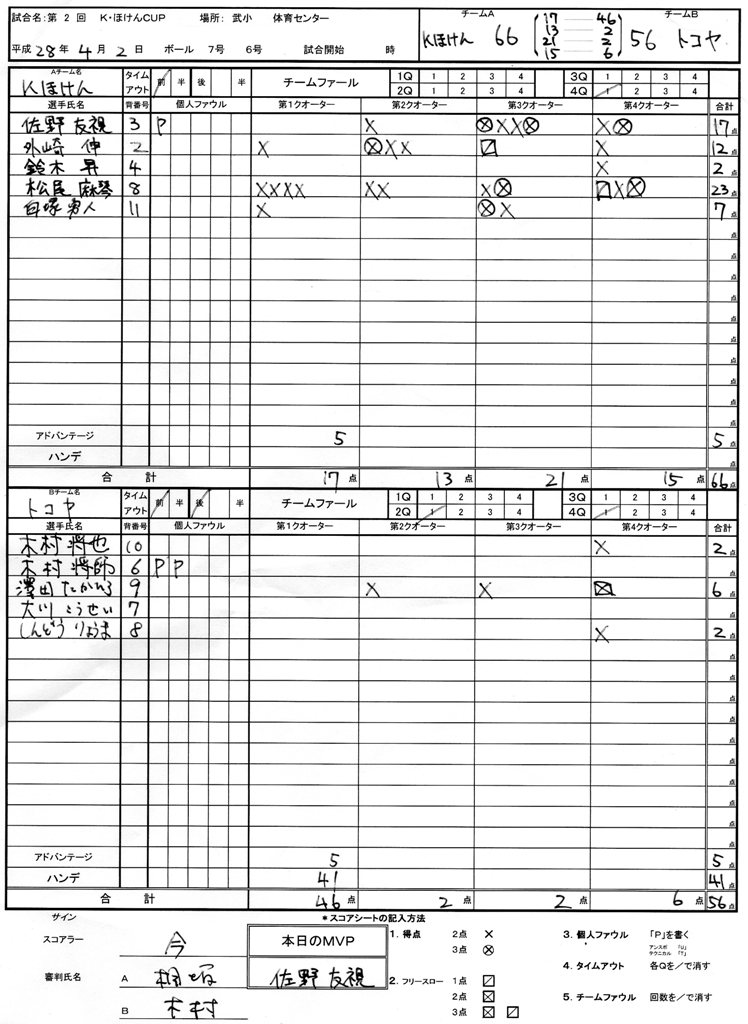 試合名:第 2 回 K・ほけんCUP 場所: 武小 体育センター
平成 28年 4月 2日 ボール 7号 6号 試合開始 時
チームA チームB
Kほけん 66 56 トコヤ
17 46
13 2
21 2
15 6
Aチーム名 Kほけん タイムアウト 前半 後半 チームファール 1Q 1 2 3 4 3Q 1 2 3 4
2Q 1 2 3 4 4Q 1 2 3 4
選手氏名 背番号 個人ファウル 第1クオーター 第2クオーター 第3クオーター 第4クオーター 合計
佐野 友視 3 P X ⊗XX⊗ X⊗ 17点
外崎 伸 2 X ⊗XX ☐ X 12点
鈴木 昇 4 X 2点
松尾 麻琴 8 XXXX XX X⊗ ☐X⊗ 23点
白塚 勇人 11 X ⊗X 7点
アドバンテージ 5 5点
ハンデ 点
合 計 17点 13点 21点 15点 66点
Bチーム名 トコヤ タイムアウト 前半 後半 チームファール 1Q 1 2 3 4 3Q 1 2 3 4
2Q 1 2 3 4 4Q 1 2 3 4
選手氏名 背番号 個人ファウル 第1クオーター 第2クオーター 第3クオーター 第4クオーター 合計
木村 将也 10 X 2点
木村 将師 6 P P 点
澤田 たかひろ 9 X X ☒ 6点
大川 こうせい 7 点
しんどう りょうま 8 X 2点
アドバンテージ 5 5点
ハンデ 41 41点
合 計 46点 2点 2点 6点 56点
サイン *スコアシートの記入方法
スコアラー 今 本日のMVP
審判氏名 A 佐野 友視
B 木村
1. 得点 2点 ×
3点 ⊗
2. フリースロー 1点 ⧄
2点 ☒
3点 ☒ ⧄
3. 個人ファウル 「P」を書く
アンスポ 「U」
テクニカル 「T」
4. タイムアウト 各Qを/で消す
5. チームファウル 回数を/で消す